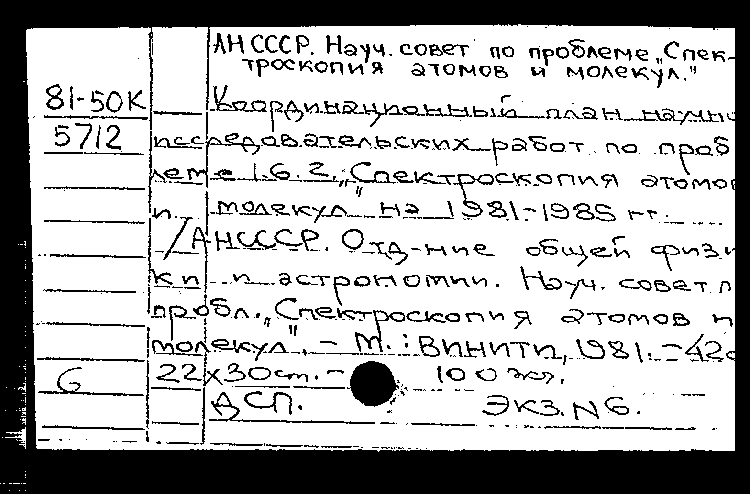 АН СССР. Науч. совет по проблеме „Спек-
троскопия атомов и молекул."
81-50К
5712
Координационный план научно
исследовательских работ по проб
леме 1.6.2. „Спектроскопия атомо
и молекул" на 1981-1985 гг.
/АН СССР. Отд-ние общей физи
ки и астрономии. Науч. совет п
пробл. „Спектроскопия атомов и
молекул". – М.: ВИНИТИ, 1981. – 42с
6
22х30см. – 100 экз.
ДСП. ЭКЗ. N 6.